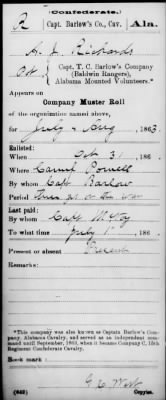 (Confederate.)
R Capt. Barlow's Co., Cav. Ala.
H. L. Richards
Capt. T. C. Barlow's Company
(Baldwin Rangers),
Alabama Mounted Volunteers.*
Appears on
Company Muster Roll
of the organization named above,
for July & Aug, 1863
Enlisted:
When Oct 31, 186
Where Camp Powell
By whom Capt Barlow
Period three yrs or the war
Last paid:
By whom Capt
To what time July 1, 186
Present or absent Present
Remarks:
*This company was also known as Captain Barlow's Company, Alabama Cavalry, and served as an independent command until September, 1863, when it became Company C, 15th Regiment Confederate Cavalry.
Book mark:
(642)